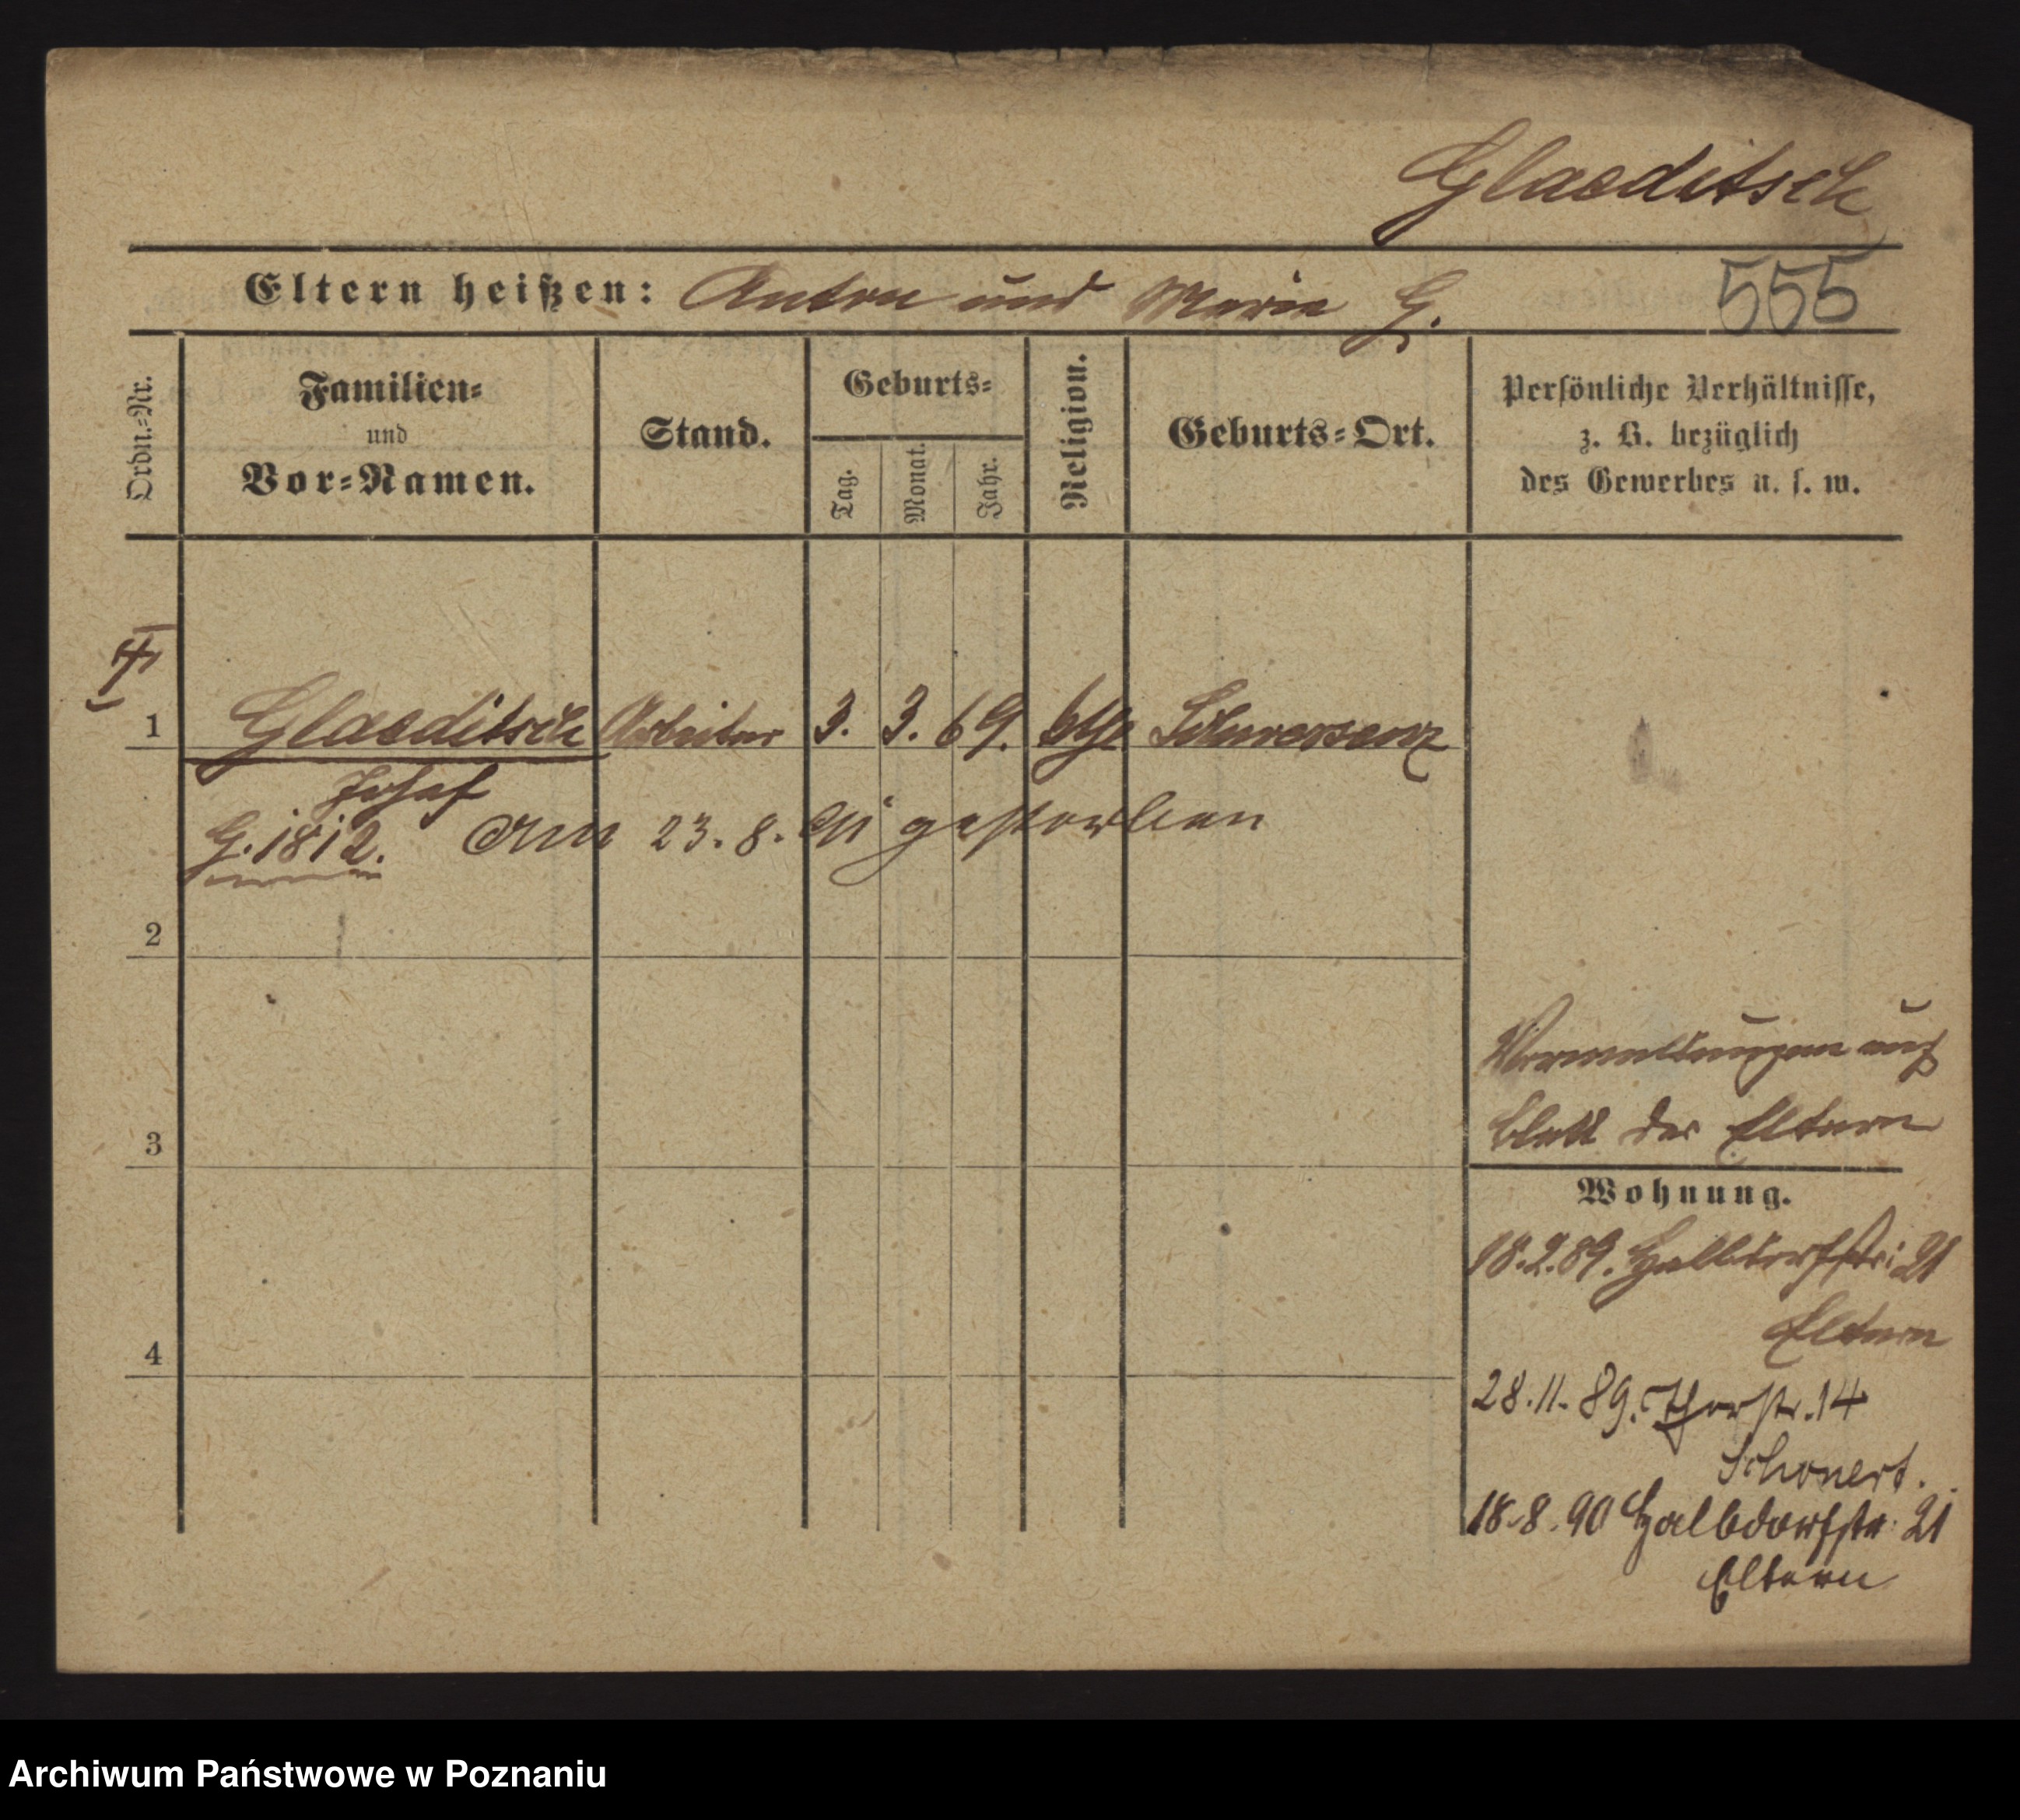 Glaeditsch
Eltern heißen: Anton und Marie G.
555
Ordn.-Nr.
Familien-
und
Vor-Namen.
Stand.
Geburts-
Tag.
Monat.
Jahr.
Religion.
Geburts-Ort.
Persönliche Verhältnisse,
z. B. bezüglich
des Gewerbes u. s. w.
1 Glaeditsch Arbeiter 3. 3. 69. kth Schwersenz
Josef
G. 1812. Am 23. 8. 91 gestorben
2
3
4
Vermerkungen auf
blatt der Eltern
Wohnung.
18.2.89. Halbdorfstr: 21
Eltern
28.11.89. Thorstr. 14
Schonert.
18.8.90 Halbdorfstr. 21
Eltern
Archiwum Państwowe w Poznaniu